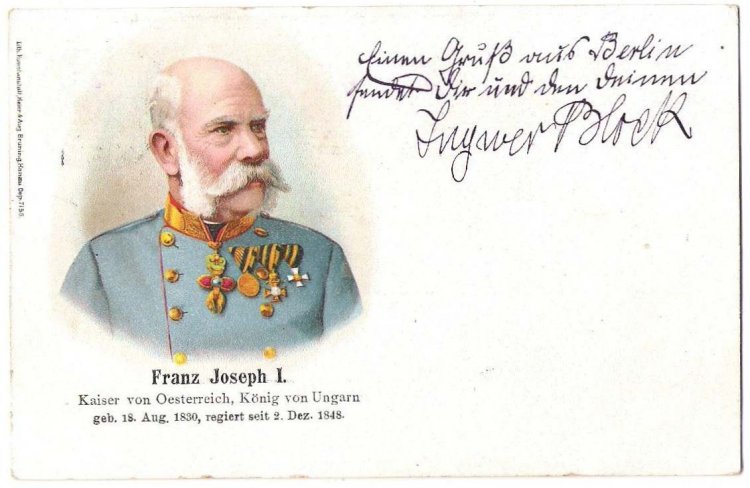 Einen Gruß aus Berlin
sendet Dir und den Deinen
Ingwer Block
Franz Joseph I.
Kaiser von Oesterreich, König von Ungarn
geb. 18. Aug. 1830, regiert seit 2. Dez. 1848.
Lith. Kunstanstalt Heinr. & Aug. Brüning, Hanau Dep. 7156.